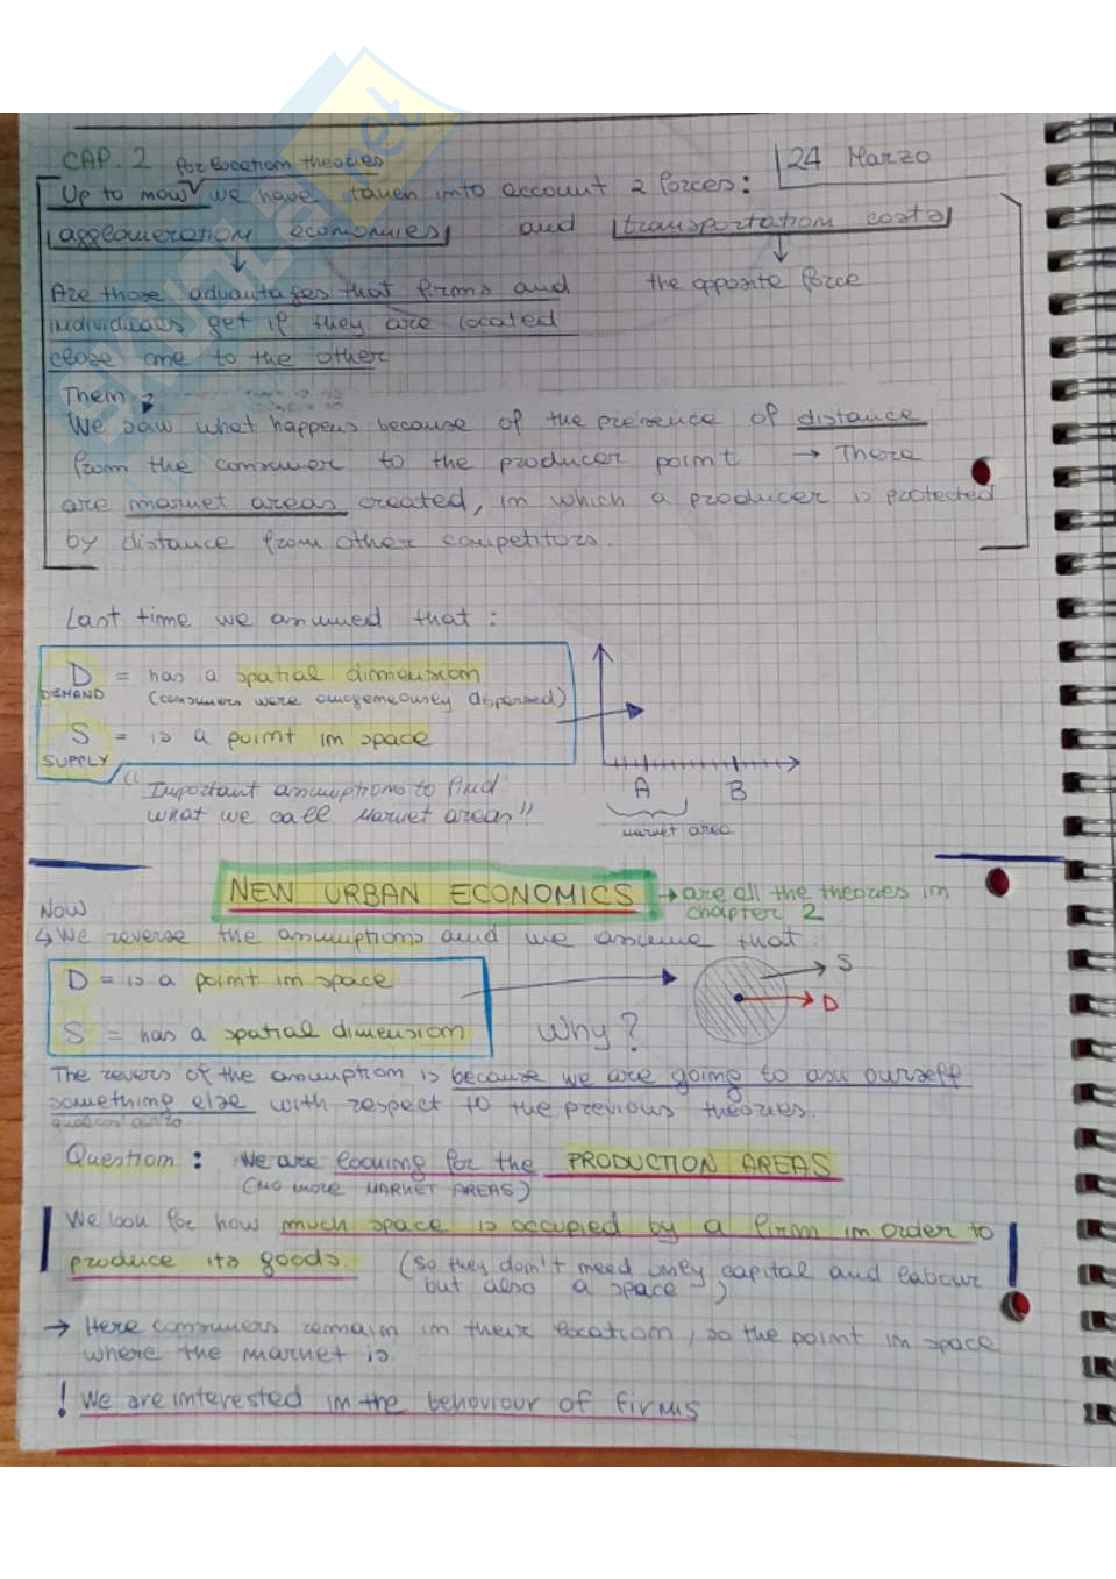 CAP. 2 for location theories
24 Marzo
Up to now we have taken into account 2 forces:
agglomeration economies and transportation costs
Are those advantages that firms and the opposite force
individuals get if they are located
close one to the other
Then
We saw what happens because of the presence of distance
from the consumer to the producer point → There
are market areas created, in which a producer is protected
by distance from other competitors.
Last time we assumed that :
D = has a spatial dimension
DEMAND (consumers were omogeneously dispersed)
S = is a point in space
SUPPLY
"Important assumptions to find
what we call Market areas"
A B
market area
NEW URBAN ECONOMICS → are all the theories in
chapter 2
Now
↳ We reverse the assumptions and we assume that
D = is a point in space
S = has a spatial dimension
S
D
Why?
The revers of the assumption is because we are going to ask ourself
something else with respect to the previous theories.
Question : We are looking for the PRODUCTION AREAS
(no more MARKET AREAS)
We look for how much space is occupied by a firm in order to
produce its goods. (so they don't need only capital and labour
but also a space)
→ Here consumers remain in their location, so the point in space
where the market is.
! We are interested in the behaviour of firms